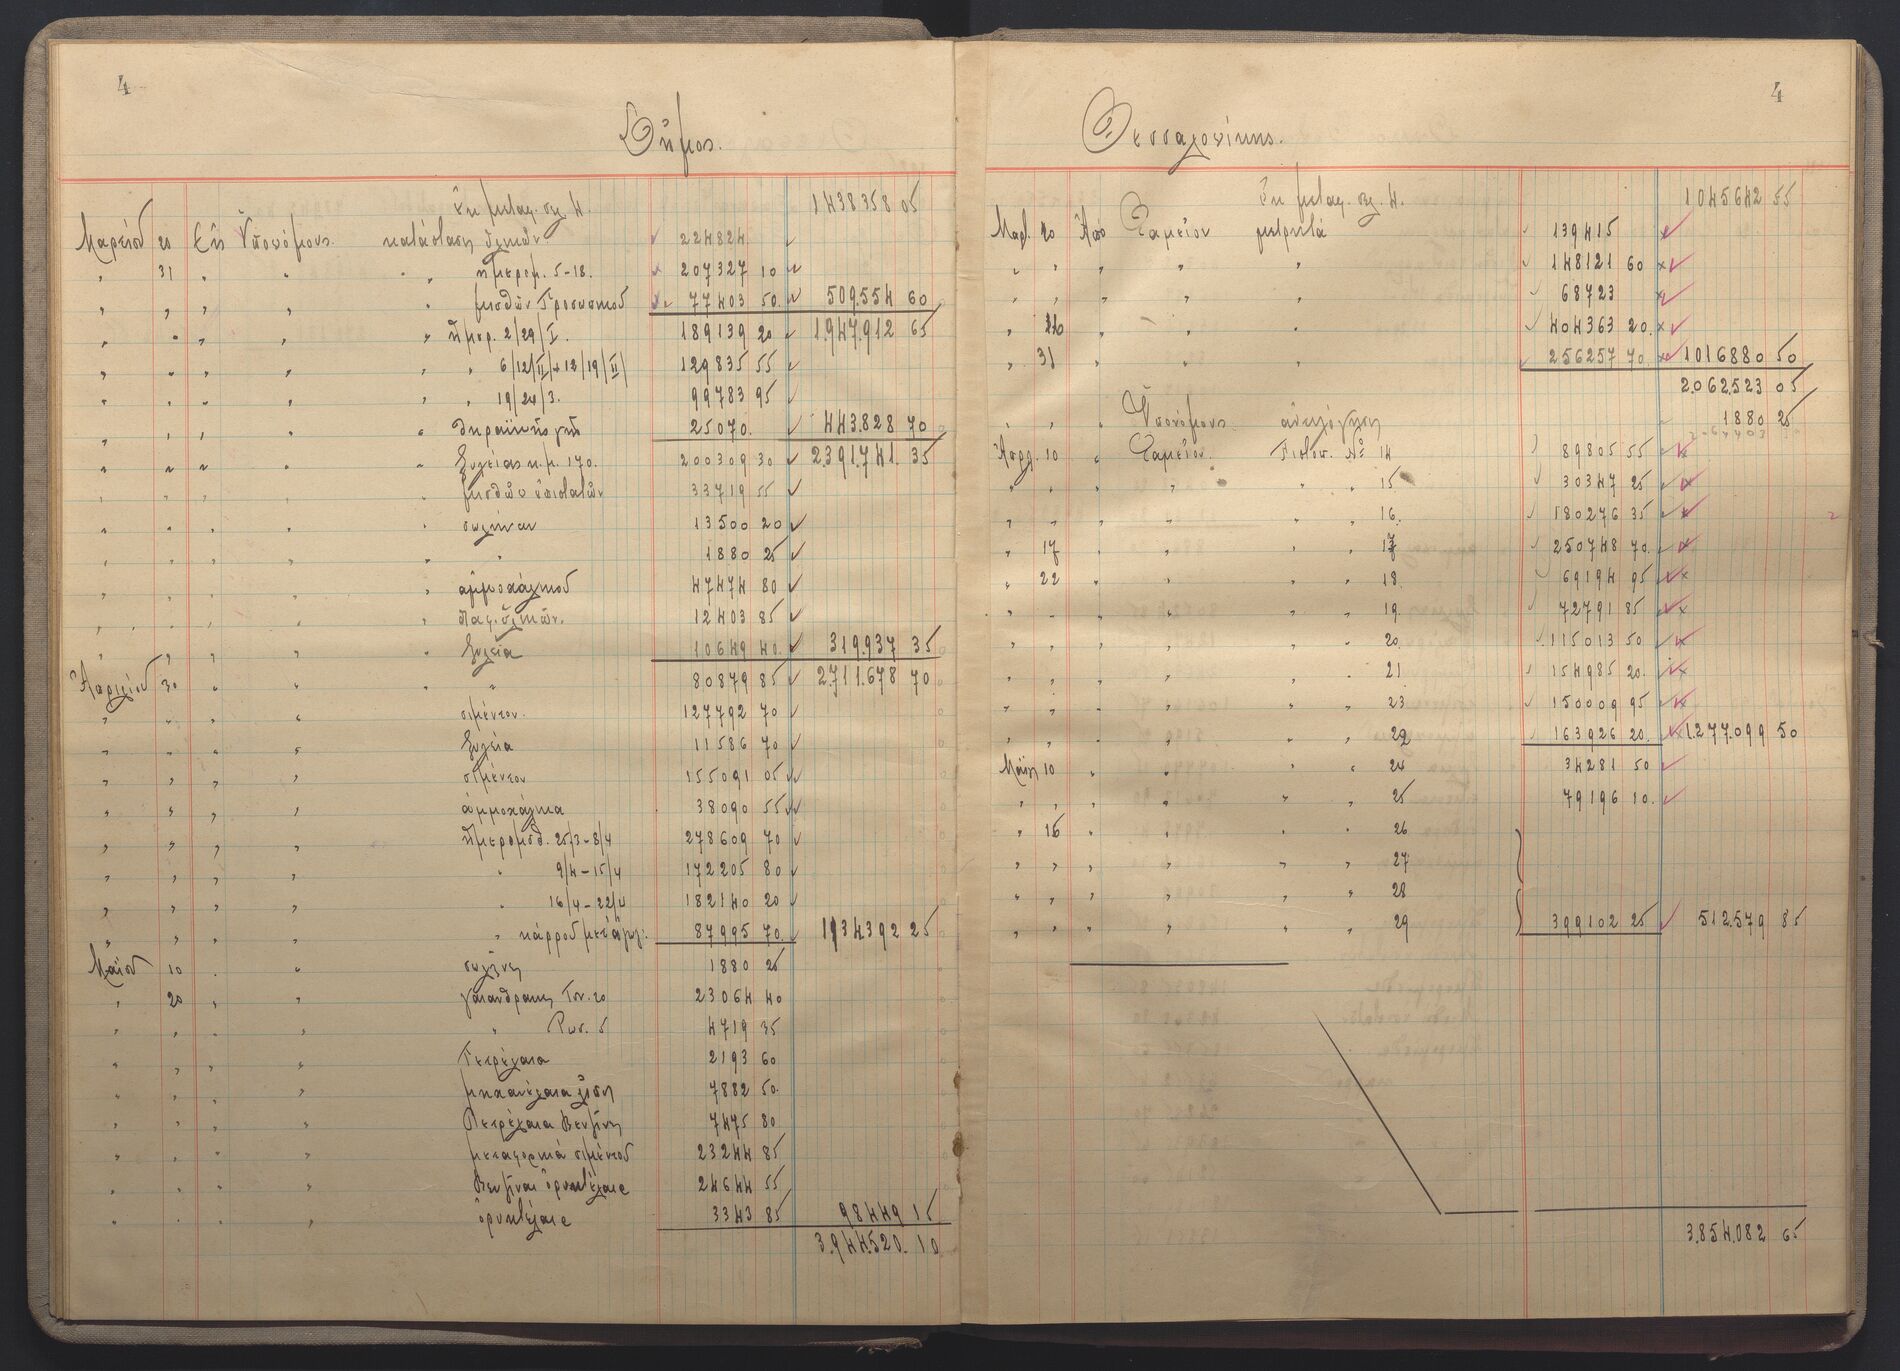 4
Δῆμος.
Ἐκ μεταφ. σελ. 4. 1438358 05
Μαρτίου 20 Εἰς Ὑπονόμους. κατάστασις ὑλικῶν 224824
„ 31 „ „ „ „ ἡμερομ. 5-18. 207327 10
„ „ „ „ „ μισθῶν Προσωπικοῦ 77403 50. 509.554 60
„ „ „ „ „ ἡμερ. 2/29/I. 189139 20 1.947.912 65
„ „ „ „ „ „ 6/12/II/+12/19/II/ 129835 55
„ „ „ „ „ „ 19/24/3. 99783 95
„ „ „ „ „ θηραϊκῆς γῆς 25070. 443.828 70
„ „ „ „ „ ξυλείας κ.μ. 170. 200309 30 2.391.741. 35
„ „ „ „ „ μισθῶν ἐπιστατῶν 33719 55
„ „ „ „ „ σωλήνων 13500 20
„ „ „ „ „ „ 1880 25
„ „ „ „ „ ἀμμοχάλικου 47474 80
„ „ „ „ „ 12403 85
„ „ „ „ „ ξυλεία 10649 40. 319.937 35
Ἀπριλίου 30 „ „ „ „ 80879 85 2.711.678 70
„ „ „ „ σιμέντον. 127792 70
„ „ „ „ ξυλεία 11586 70
„ „ „ „ σιμέντον 155091 05
„ „ „ „ ἀμμοχάλικα 38090 55
„ „ „ „ ἡμερομίσθ. 25/3-8/4 278609 70
„ „ „ „ „ 9/4-15/4 172205 80
„ „ „ „ „ 16/4-22/4 182140 20
„ „ „ „ „ κάρρου 87995 70. 1134392 25
Μαΐου 10 . „ σωλῆνες 1880 25
„ 20 „ „ γαιάνθρακες Τον. 20 23064 40
„ „ „ „ „ Ρωσ. 5 4719 35
„ „ „ „ Πετρέλαια 2193 60
„ „ „ „ μηχανέλαια 7882 50.
„ „ „ „ Πετρέλαια Βενζίνης 7475 80
„ „ „ „ μεταφορικά σιμέντου 23244 85
„ „ „ „ Βενζῖναι ὀρυκτέλαια 24644 55
„ „ „ „ ὀρυκτέλαια 3343 85 98449 15
3.944.520. 10
4
Θεσσαλονίκης.
Ἐκ μεταφ. σελ. 4. 1045642 55
Μαρτ. 20 Ἀπό Ταμεῖον μετρητά 139415
„ „ „ „ „ 148121 60
„ „ „ „ „ 68723
„ „ „ „ 404363 20.
„ 31 „ „ „ 256257 70 1016880 50
2.062.523 05
„ „ „ Ὑπονόμους ἀντιλόγηση 1880 25
Ἀπρλ. 10 „ Ταμεῖον. Πιστοπ. Νο 14 89805 55
„ „ „ „ „ „ 15 30347 25
„ „ „ „ „ „ 16. 180276 35
„ 17 „ „ „ „ 17 250748 70.
„ 22 „ „ „ „ 18. 69194 95
„ „ „ „ „ „ 19. 72791 85
„ „ „ „ „ „ 20. 115013 50
„ „ „ „ „ „ 21 154985 20.
„ „ „ „ „ „ 23 150009 95
„ „ „ „ „ „ 22 163926 20. 1.277.099 50
Μαΐου 10 „ „ „ „ 24 34281 50
„ „ „ „ „ „ 25 79196 10.
„ 16 „ „ „ „ 26
„ „ „ „ „ „ 27
„ „ „ „ „ „ 28
„ „ „ „ „ „ 29 399102 25 512.579 85
3.854.082 65